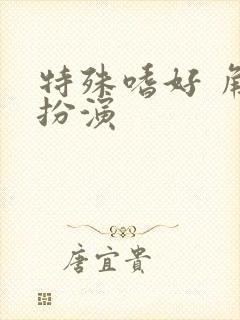 特殊嗜好 角
扮演
唐宜貴